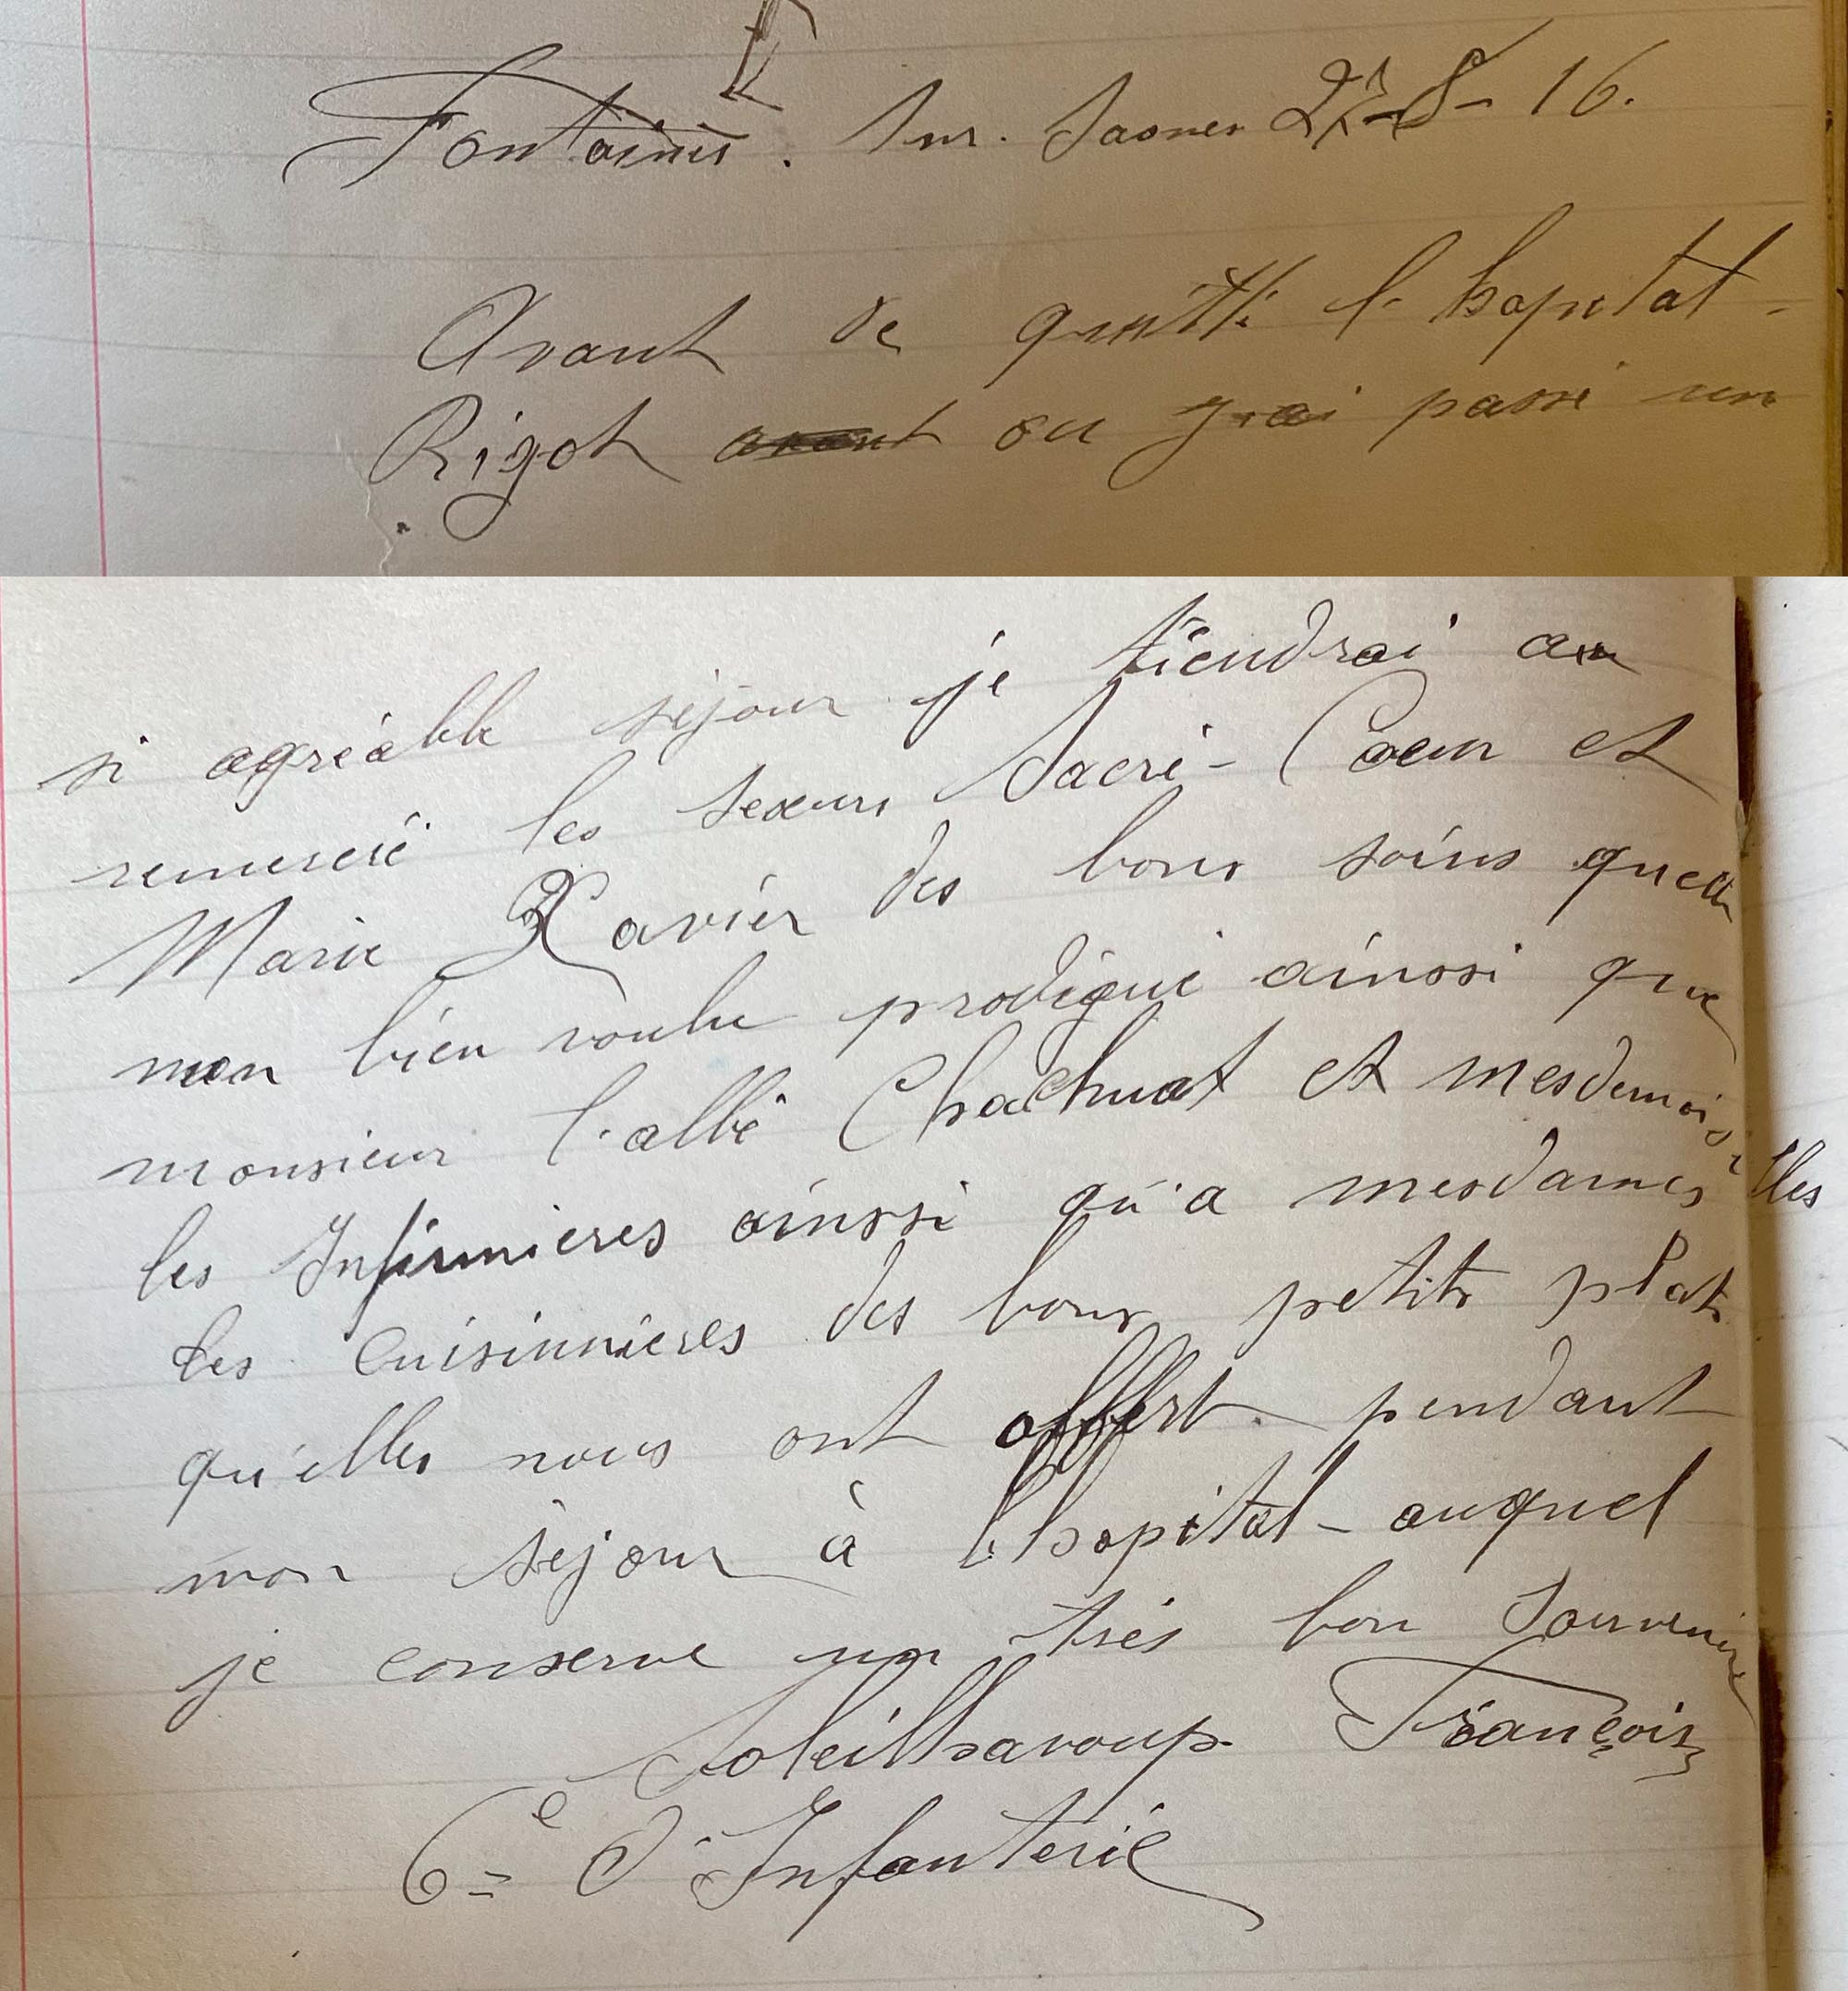 Fontaines. sur. Saones 27-8-16.
Avant de quitté l'hopital-
Rigot ou j'ai passé un
si agréable séjour je tiendrai a
remercié les sexurs Sacré-Coeur et
Marie Xavier des bons soins quelle
mon bien voulu prodigué ainssi que
monsieur l'abbé Chachuat et mesdemoiselles
les Infirmieres ainssi qu'a mesdames
les cuisinnieres des bons petits plats
qu'elles nous ont offert. pendant
mon séjour à l'hopital-auquel
je conserve un très bon Souvenir
Soleilhavoup François
6e d'Infanterie